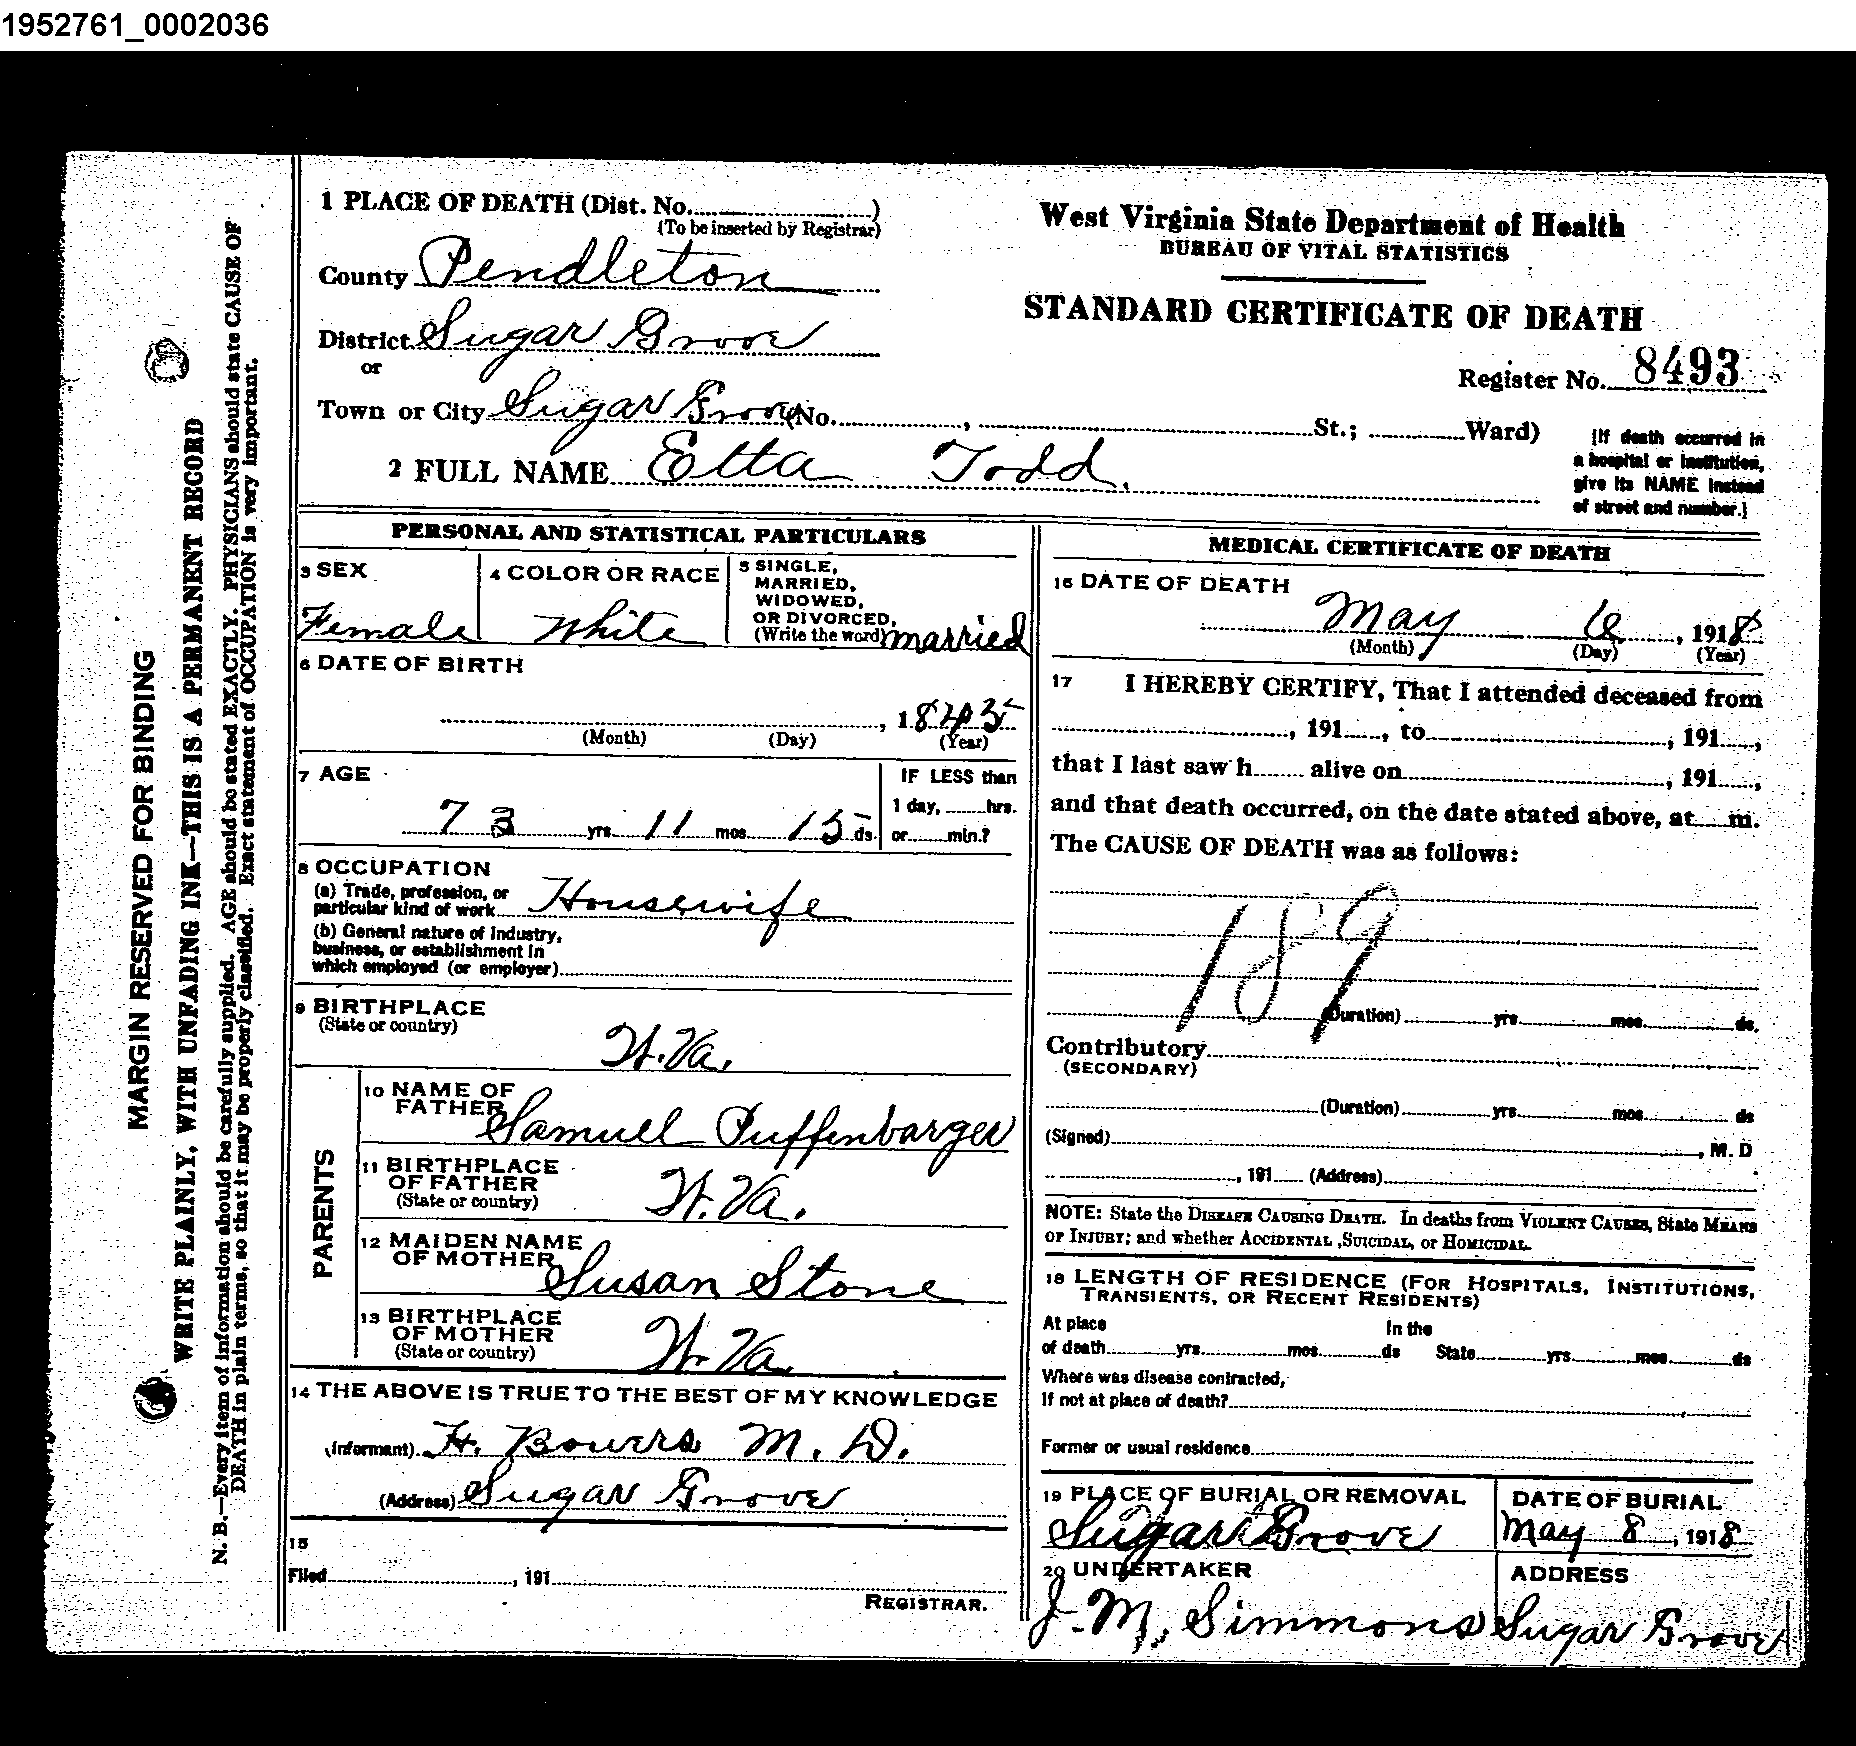 1952761_0002036
MARGIN RESERVED FOR BINDING
WRITE PLAINLY, WITH UNFADING INK—THIS IS A PERMANENT RECORD
N. B.—Every item of information should be carefully supplied. AGE should be stated EXACTLY. PHYSICIANS should state CAUSE OF
DEATH in plain terms, so that it may be properly classified. Exact statement of OCCUPATION is very important.
1 PLACE OF DEATH (Dist. No. )
(To be inserted by Registrar)
County Pendleton
District Sugar Grove
or
Town or City Sugar Grove (No. , St.; Ward)
West Virginia State Department of Health
BUREAU OF VITAL STATISTICS
STANDARD CERTIFICATE OF DEATH
Register No. 8493
[If death occurred in
a hospital or institution,
give its NAME instead
of street and number.]
2 FULL NAME Etta Todd.
PERSONAL AND STATISTICAL PARTICULARS
3 SEX
Female
4 COLOR OR RACE
White
5 SINGLE,
MARRIED,
WIDOWED,
OR DIVORCED,
(Write the word) married
6 DATE OF BIRTH
, 1845
(Month) (Day) (Year)
7 AGE
73 yrs. 11 mos. 15 ds.
IF LESS than
1 day, hrs.
or min.?
8 OCCUPATION
(a) Trade, profession, or
particular kind of work Housewife
(b) General nature of industry,
business, or establishment in
which employed (or employer)
9 BIRTHPLACE
(State or country)
W. Va.
PARENTS
10 NAME OF
FATHER Samuel Puffenbarger
11 BIRTHPLACE
OF FATHER
(State or country) W. Va.
12 MAIDEN NAME
OF MOTHER Susan Stone
13 BIRTHPLACE
OF MOTHER
(State or country) W. Va.
14 THE ABOVE IS TRUE TO THE BEST OF MY KNOWLEDGE
(Informant) H. Bowers M. D.
(Address) Sugar Grove
15
Filed , 191
REGISTRAR.
MEDICAL CERTIFICATE OF DEATH
16 DATE OF DEATH
May 6, 1918
(Month) (Day) (Year)
17 I HEREBY CERTIFY, That I attended deceased from
, 191 , to , 191 ,
that I last saw h alive on , 191 ,
and that death occurred, on the date stated above, at m.
The CAUSE OF DEATH was as follows:
189
(Duration) yrs. mos. ds.
Contributory
(SECONDARY)
(Duration) yrs. mos. ds
(Signed) , M. D
, 191 (Address)
NOTE: State the DISEASE CAUSING DEATH. In deaths from VIOLENT CAUSES, State MEANS
OF INJURY; and whether ACCIDENTAL ,SUICIDAL, or HOMICIDAL.
18 LENGTH OF RESIDENCE (FOR HOSPITALS, INSTITUTIONS,
TRANSIENTS, OR RECENT RESIDENTS)
At place In the
of death yrs. mos. ds State yrs. mos. ds
Where was disease contracted,
If not at place of death?
Former or usual residence
19 PLACE OF BURIAL OR REMOVAL
Sugar Grove
DATE OF BURIAL
May 8, 1918
20 UNDERTAKER
J. M. Simmons
ADDRESS
Sugar Grove